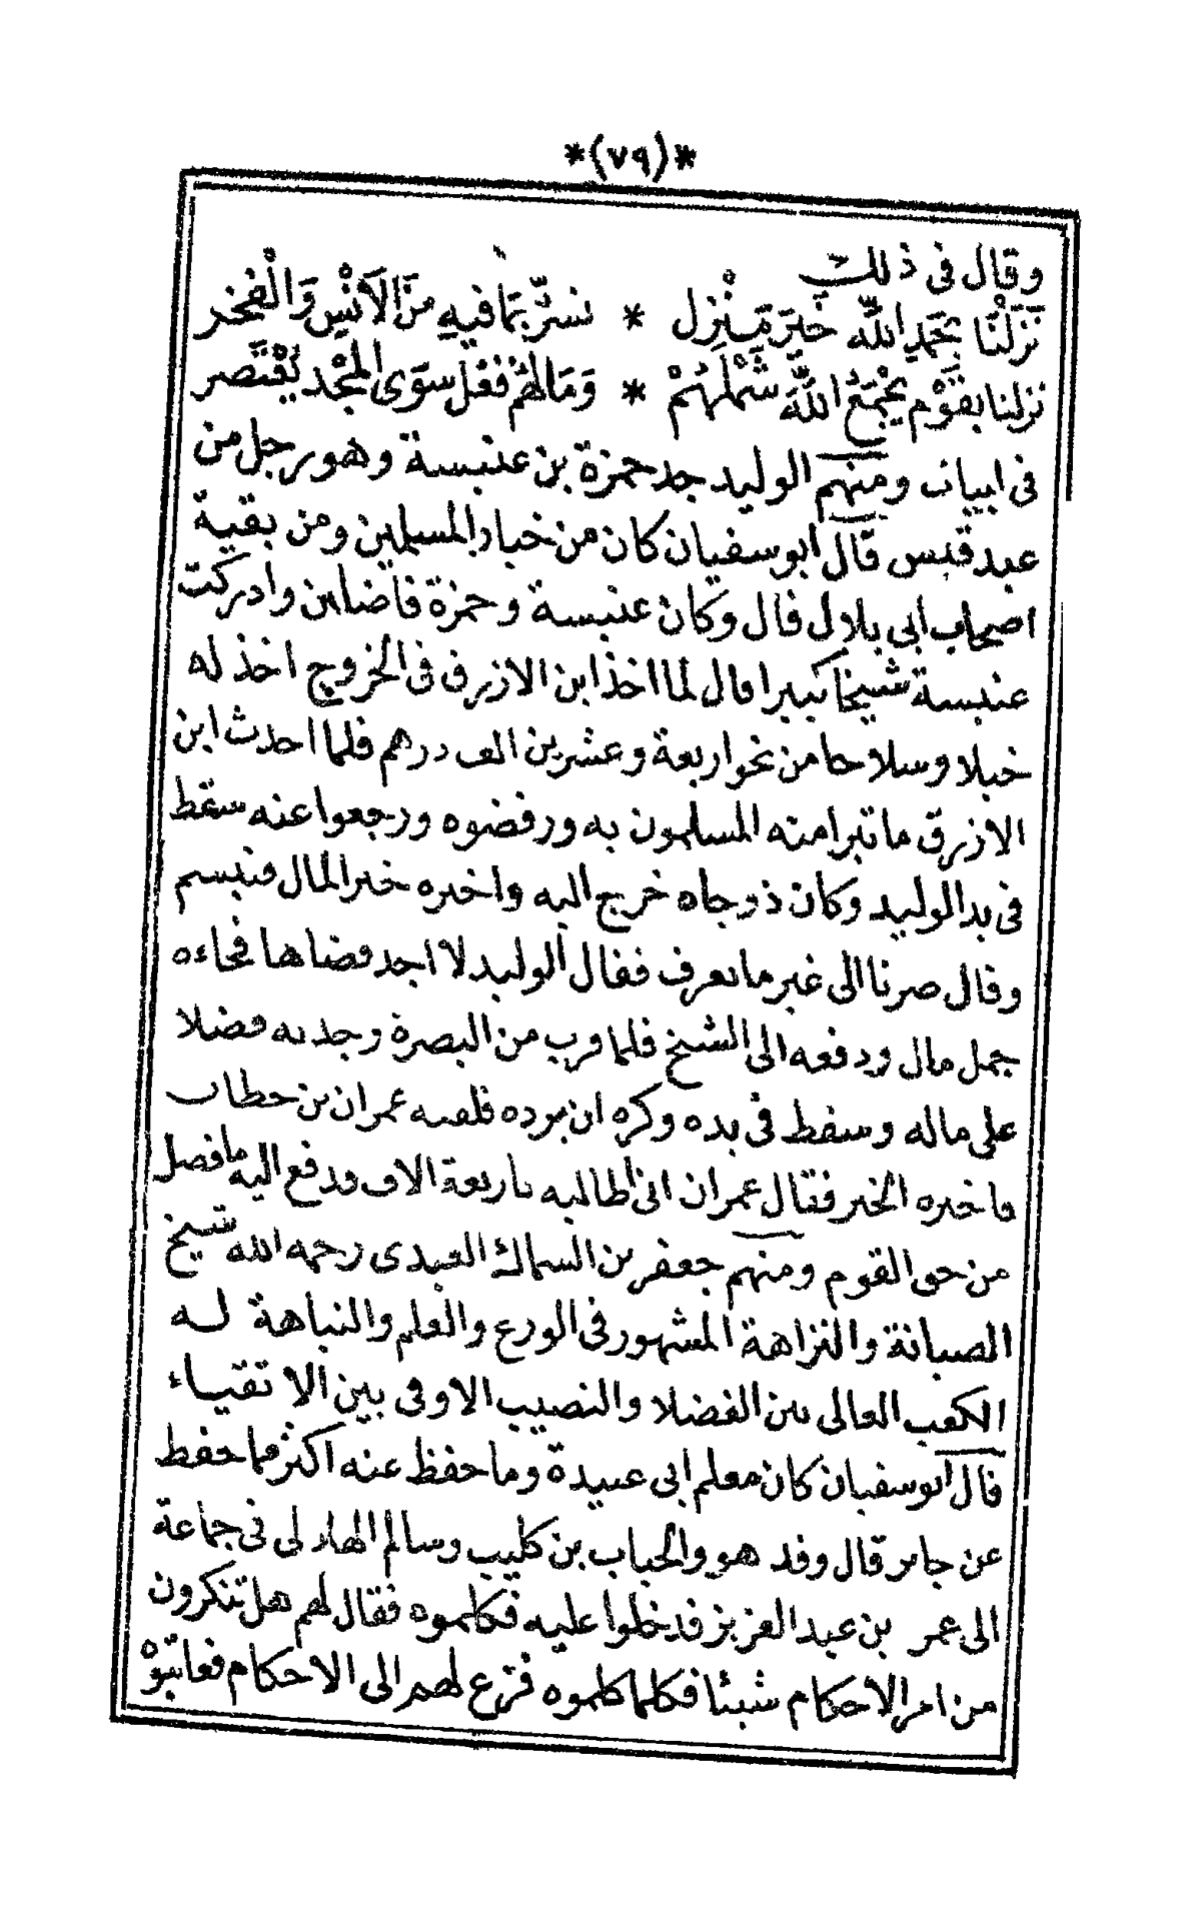 *(٧٩)*
وقال فى ذلك
نَزَلْنَا بِحَمدِ اللَّه خَيرَ مَنْزِل * نسرّ بما فيهِ مِنَ الاَنْسِ وَالْفَخر
نزلنا بقَوْم يَجْمَعُ اللَّه شَمْلَهُمْ * وَمَالهُمْ فعْل سوَى المَجْد يُقْتَصر
فى ابيات ومنهم الوليد جد حمزة بن عنبسة وهو رجل من
عبد قيس قال ابو سفيان كان من خيار المسلمين ومن بقية
اصحاب ابى بلال قال وكان عنبسة وحمزة فاضلين وادركت
عنبسة شيخا كبيرا قال لما اخذ ابن الازرق فى الخروج اخذ له
خيلا وسلاحا من نحو اربعة وعشرين الف درهم فلما احدث ابن
الازرق ما تبرا منه المسلمون به ورفضوه ورجعوا عنه سقط
فى يد الوليد وكان ذو جاه خرج اليه واخبره خبر المال فتبسم
وقال صرنا الى غير ما نعرف فقال الوليد لا اجد قضاها فجاءه
جمل مال ودفعه الى الشيخ فلما قرب من البصرة وجد به فضلا
على ماله وسقط فى يده وكره ان يرده فلقيه عمران بن حطاب
فاخبره الخبر فقال عمران انى اطالبه باربعة الاف فدفع اليه ما فضل
من حق القوم ومنهم جعفر بن السماك العبدى رحمه الله شيخ
الصيانة والنزاهة المشهور فى الورع والعلم والنباهة له
الكعب العالى بين الفضلا والنصيب الاوفى بين الاتقياء
قال ابو سفيان كان معلم ابى عبيدة وما حفظ عنه اكثر مما حفظ
عن جابر قال وفد هو والحباب بن كليب وسالم الهلالى فى جماعة
الى عمر بن عبد العزيز فدخلوا عليه فكلموه فقال لهم هل تنكرون
من امر الاحكام شيئا فكلما كلموه فزع لهم الى الاحكام فعاتبوْ